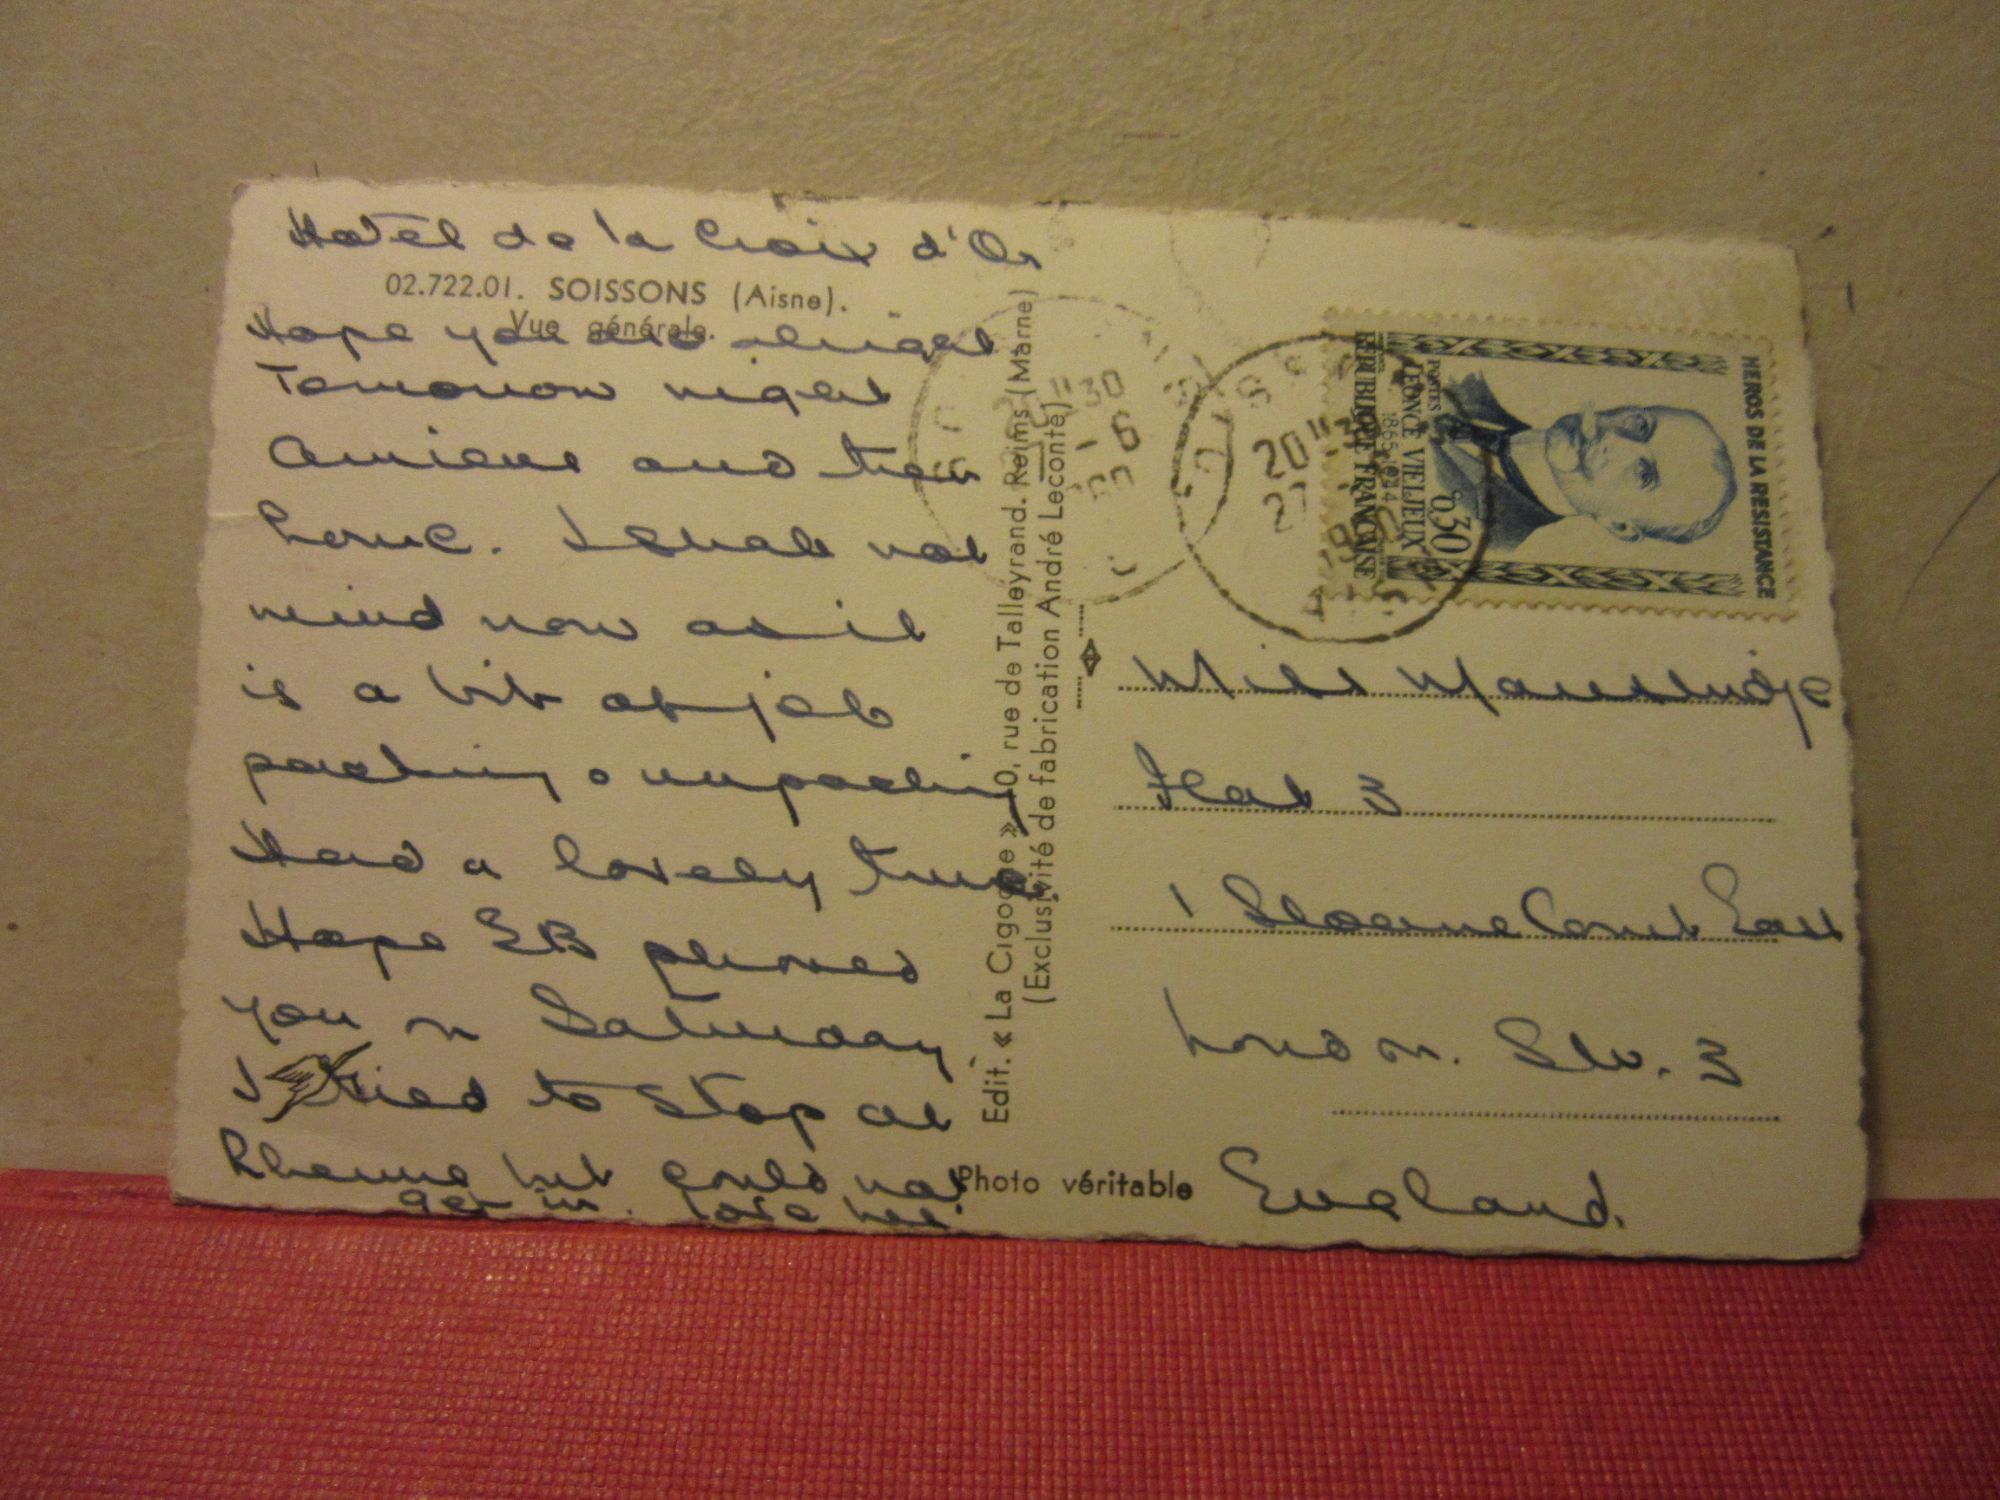 Hotel de la Croix d'Or
02.722.01. SOISSONS (Aisne).
Vue générale.
Hope you are alright
Tomorrow night
Amiens and then
home. I shall not
mind now as it
is a bit of job
packing & unpacking
Had a lovely time
Hope EB phoned
you on Saturday
I tried to stop at
but could not
get in. Love
Edit. « La Cigogne » rue de Talleyrand. Reims (Marne)
(Exclusivité de fabrication André Leconte)
Photo véritable
20 H 30
-6
60
20 H
27
HEROS DE LA RESISTANCE
0,30
POSTES
LEONCE VIELJEUX
1865-1944
REPUBLIQUE FRANCAISE
Miss
Flat 3
1 Sloane Court East
London. S.W. 3
England.